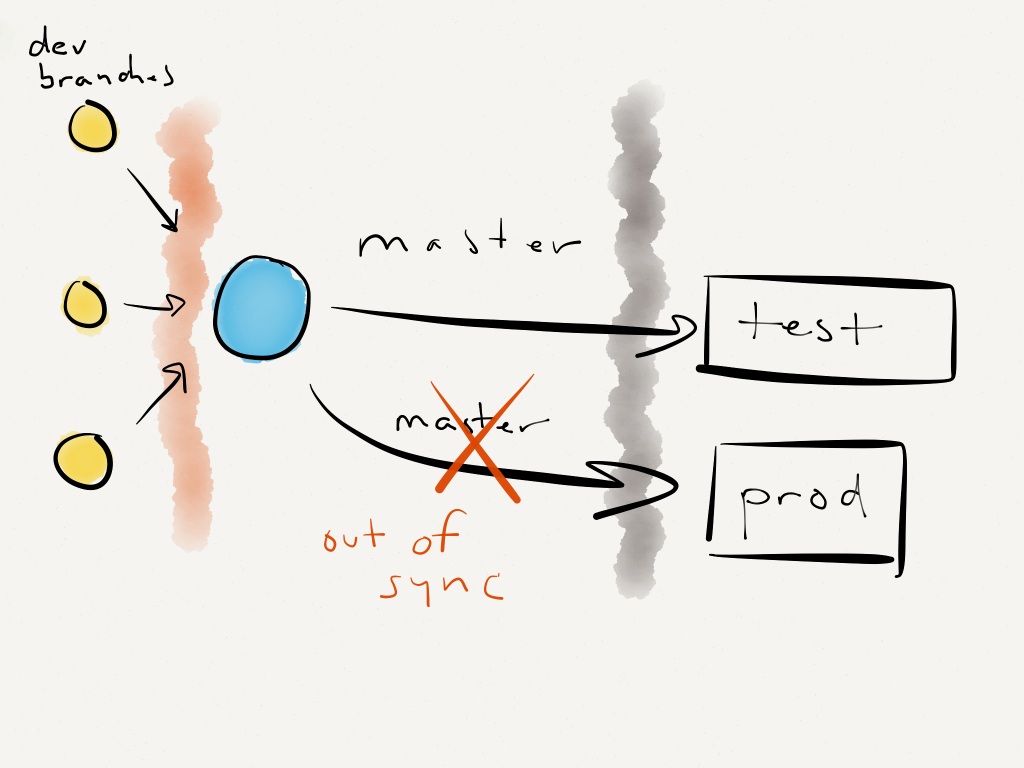 dev
branches
master
test
master
prod
out of
sync